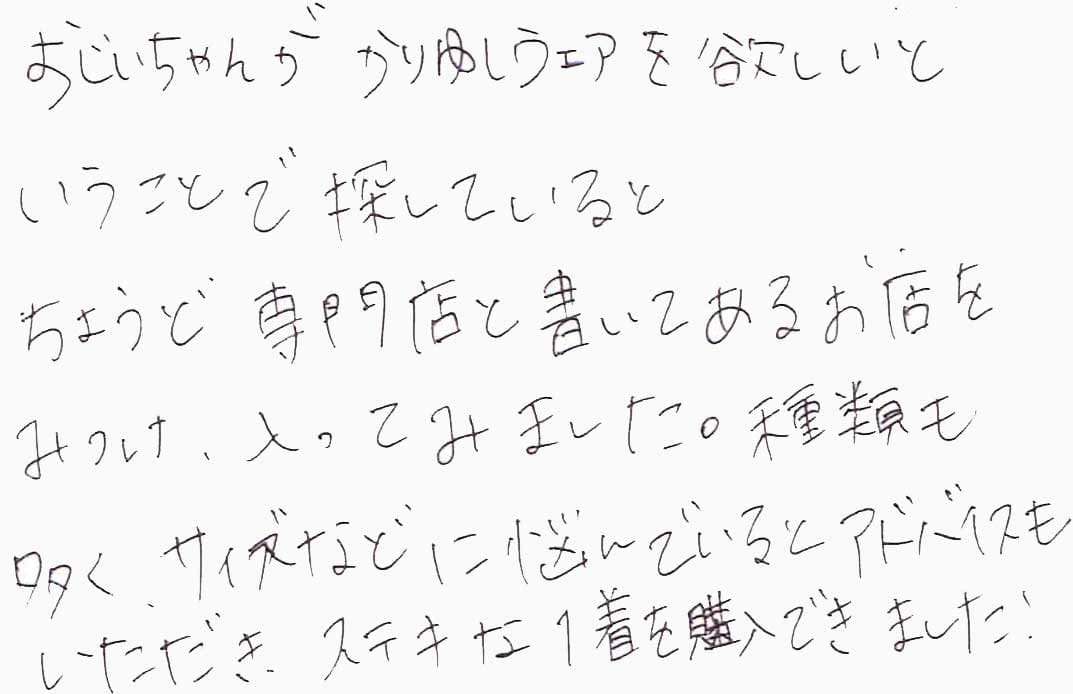 おじいちゃんが かりゆしウェアを欲しいと
いうことで探していると
ちょうど専門店と書いてあるお店を
みつけ、入ってみました。種類も
多く、サイズなどに悩んでいるとアドバイスも
いただき、ステキな1着を購入できました!